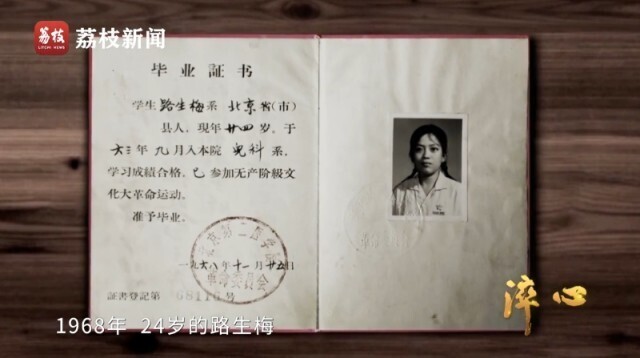 荔枝
LITCHI NEWS
荔枝新闻
毕业証书
学生路生梅系北京省(市)
县人,现年廿四岁。于
六三年九月入本院儿科系,
学习成績合格。已参加无产阶級文
化大革命运动。
准予毕业。
北京第二医学院
革命委员会
一九六八年十一月廿五日
証書登記第 68116 号
淬心
1968年 24岁的路生梅